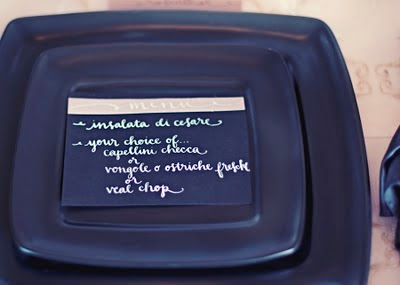 menu
insalata di cesare
your choice of...
capellini checca
or
vongole o ostriche fresche
or
veal chop